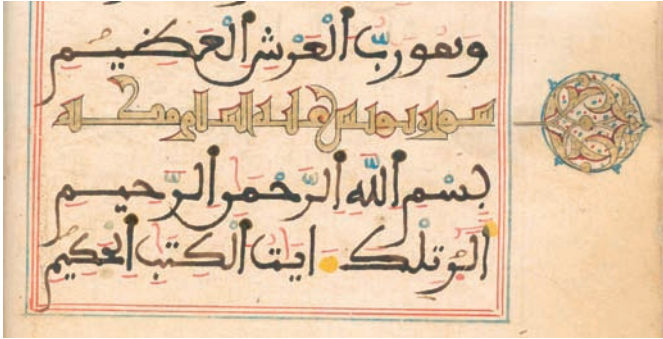 وهو رب العرش العظيم
سورة يونس عليه السلام مكية
بسم الله الرحمن الرحيم
الر تلك ايت الكتب الحكيم